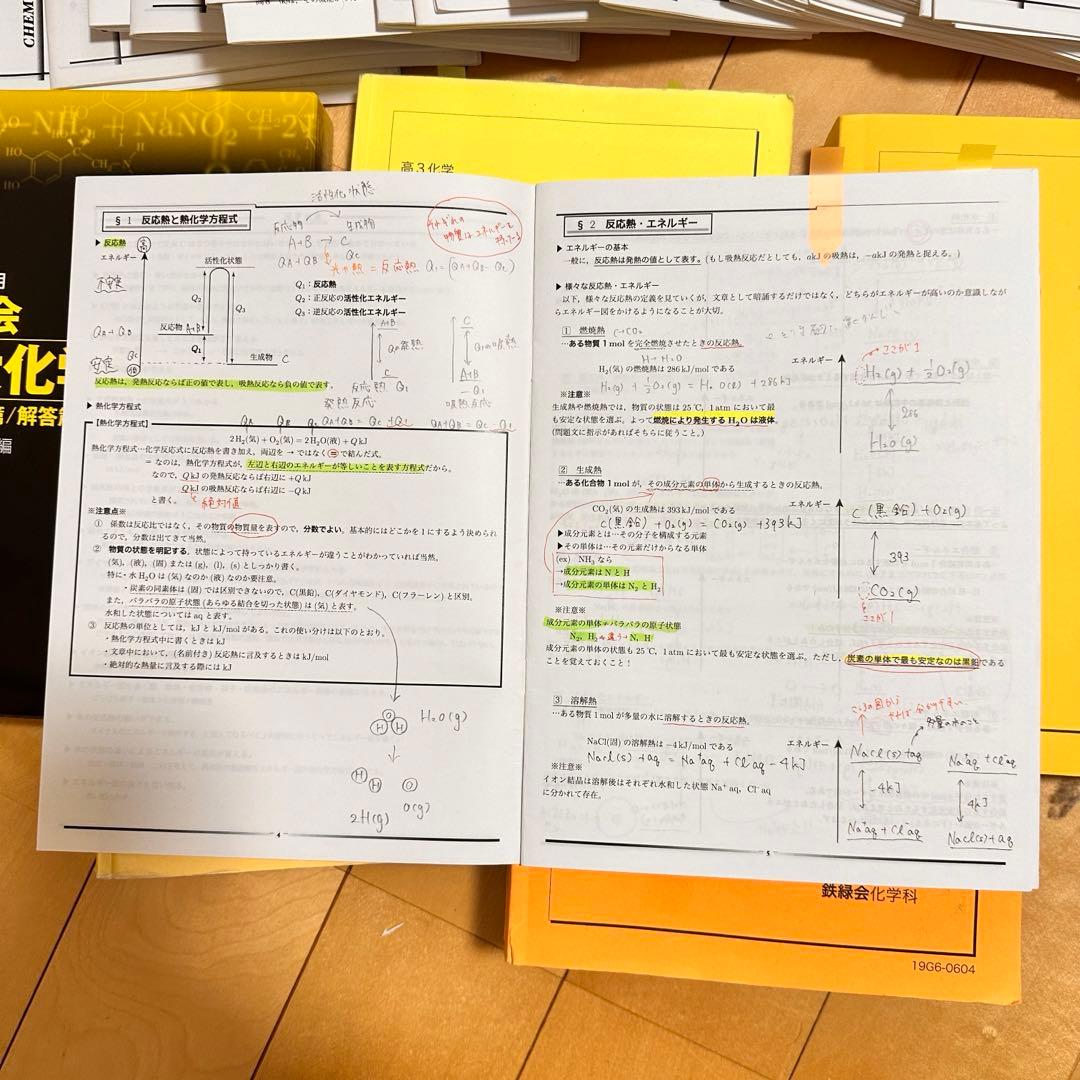 CHEM
NH₂ + NaNO₂ + 2
高3化学
会
化学
篇/解答
編
活性化状態
§1 反応熱と熱化学方程式
反応物 生成物
A+B → C
QA+QB QC
反応熱 Q₁=(QA+QB-QC)
▶ 反応熱
高
エネルギー
不安定
活性化状態
Q₁:反応熱
Q₂:正反応の活性化エネルギー
Q₃:逆反応の活性化エネルギー
Q₂
Q₃
反応物 A+B
Q₁
QA+QB
QC
安定
低
生成物 C
A+B
C
C
A+B
反応熱 Q₁
-Q₁
発熱反応
吸熱反応
反応熱は、発熱反応ならば正の値で表し、吸熱反応なら負の値で表す。
▶ 熱化学方程式
QA QB QC
【熱化学方程式】
2H₂(気)+O₂(気)=2H₂O(液)+Q kJ
熱化学方程式…化学反応式に反応熱を書き加え、両辺を → ではなく = で結んだ式。
= なのは、熱化学方程式が、左辺と右辺のエネルギーが等しいことを表す方程式だから。
なので、Q kJ の発熱反応ならば右辺に +Q kJ
Q kJ の吸熱反応ならば右辺に −Q kJ
と書く。
絶対値
※注意点※
① 係数は反応比ではなく、その物質の物質量を表すので、分数でよい。基本的にはどこかを 1 にするよう決められ
るので、分数は出てきて当然。
② 物質の状態を明記する。状態によって持っているエネルギーが違うことがわかっていれば当然。
(気)、(液)、(固) または (g)、(l)、(s) としっかり書く。
特に・水 H₂O は (気) なのか (液) なのか要注意。
・炭素の同素体は (固) では区別できないので、C(黒鉛)、C(ダイヤモンド)、C(フラーレン) と区別。
また、バラバラの原子状態 (あらゆる結合を切った状態) は (気) と表す。
水和した状態については aq と表す。
③ 反応熱の単位としては、kJ と kJ/mol がある。これの使い分けは以下のとおり。
・熱化学方程式中に書くときは kJ
・文章中において、(名前付き) 反応熱に言及するときは kJ/mol
・絶対的な熱量に言及する際には kJ
O
H H
H₂O(g)
H
H
O
2H(g)
O(g)
4
§2 反応熱・エネルギー
▶ エネルギーの基本
一般に、反応熱は発熱の値として表す。(もし吸熱反応だとしても、akJ の吸熱は、−akJ の発熱と捉える。)
▶ 様々な反応熱・エネルギー
以下、様々な反応熱の定義を見ていくが、文章として暗誦するだけではなく、どちらがエネルギーが高いのか意識しなが
らエネルギー図をかけるようになることが大切。
1 燃焼熱
C→CO₂
…ある物質 1 mol を完全燃焼させたときの反応熱。
H→H₂O
H₂(気) の燃焼熱は 286 kJ/mol である
H₂(g)+½O₂(g)=H₂O(l)+286kJ
エネルギー
ここが1
H₂(g)+½O₂(g)
286
H₂O(g)
※注意※
生成熱や燃焼熱では、物質の状態は 25℃, 1 atm において最
も安定な状態を選ぶ。よって燃焼により発生する H₂O は液体。
(問題文に指示があればそちらに従うこと。)
2 生成熱
…ある化合物 1 mol が、その成分元素の単体から生成するときの反応熱。
CO₂(気) の生成熱は 393 kJ/mol である
C(黒鉛)+O₂(g)=CO₂(g)+393kJ
エネルギー
C(黒鉛)+O₂(g)
393
CO₂(g)
ここが1
▶成分元素とは…その分子を構成する元素
▶その単体は…その元素だけからなる単体
(ex) NH₃ なら
→成分元素は N と H
→成分元素の単体は N₂ と H₂
※注意※
成分元素の単体≠バラバラの原子状態
N₂、H₂ 違う N、H
成分元素の単体の状態も 25℃, 1 atm において最も安定な状態を選ぶ。ただし、炭素の単体で最も安定なのは黒鉛である
ことを覚えておくこと!
3 溶解熱
…ある物質 1 mol が多量の水に溶解するときの反応熱。
多量の水のこと
NaCl(固) の溶解熱は −4 kJ/mol である
NaCl(s)+aq = Na⁺aq + Cl⁻aq − 4kJ
エネルギー
NaCl(s)+aq
-4kJ
Na⁺aq+Cl⁻aq
Na⁺aq+Cl⁻aq
4kJ
NaCl(s)+aq
※注意※
イオン結晶は溶解後はそれぞれ水和した状態 Na⁺ aq、Cl⁻ aq
に分かれて存在。
5
鉄緑会化学科
19G6-0604